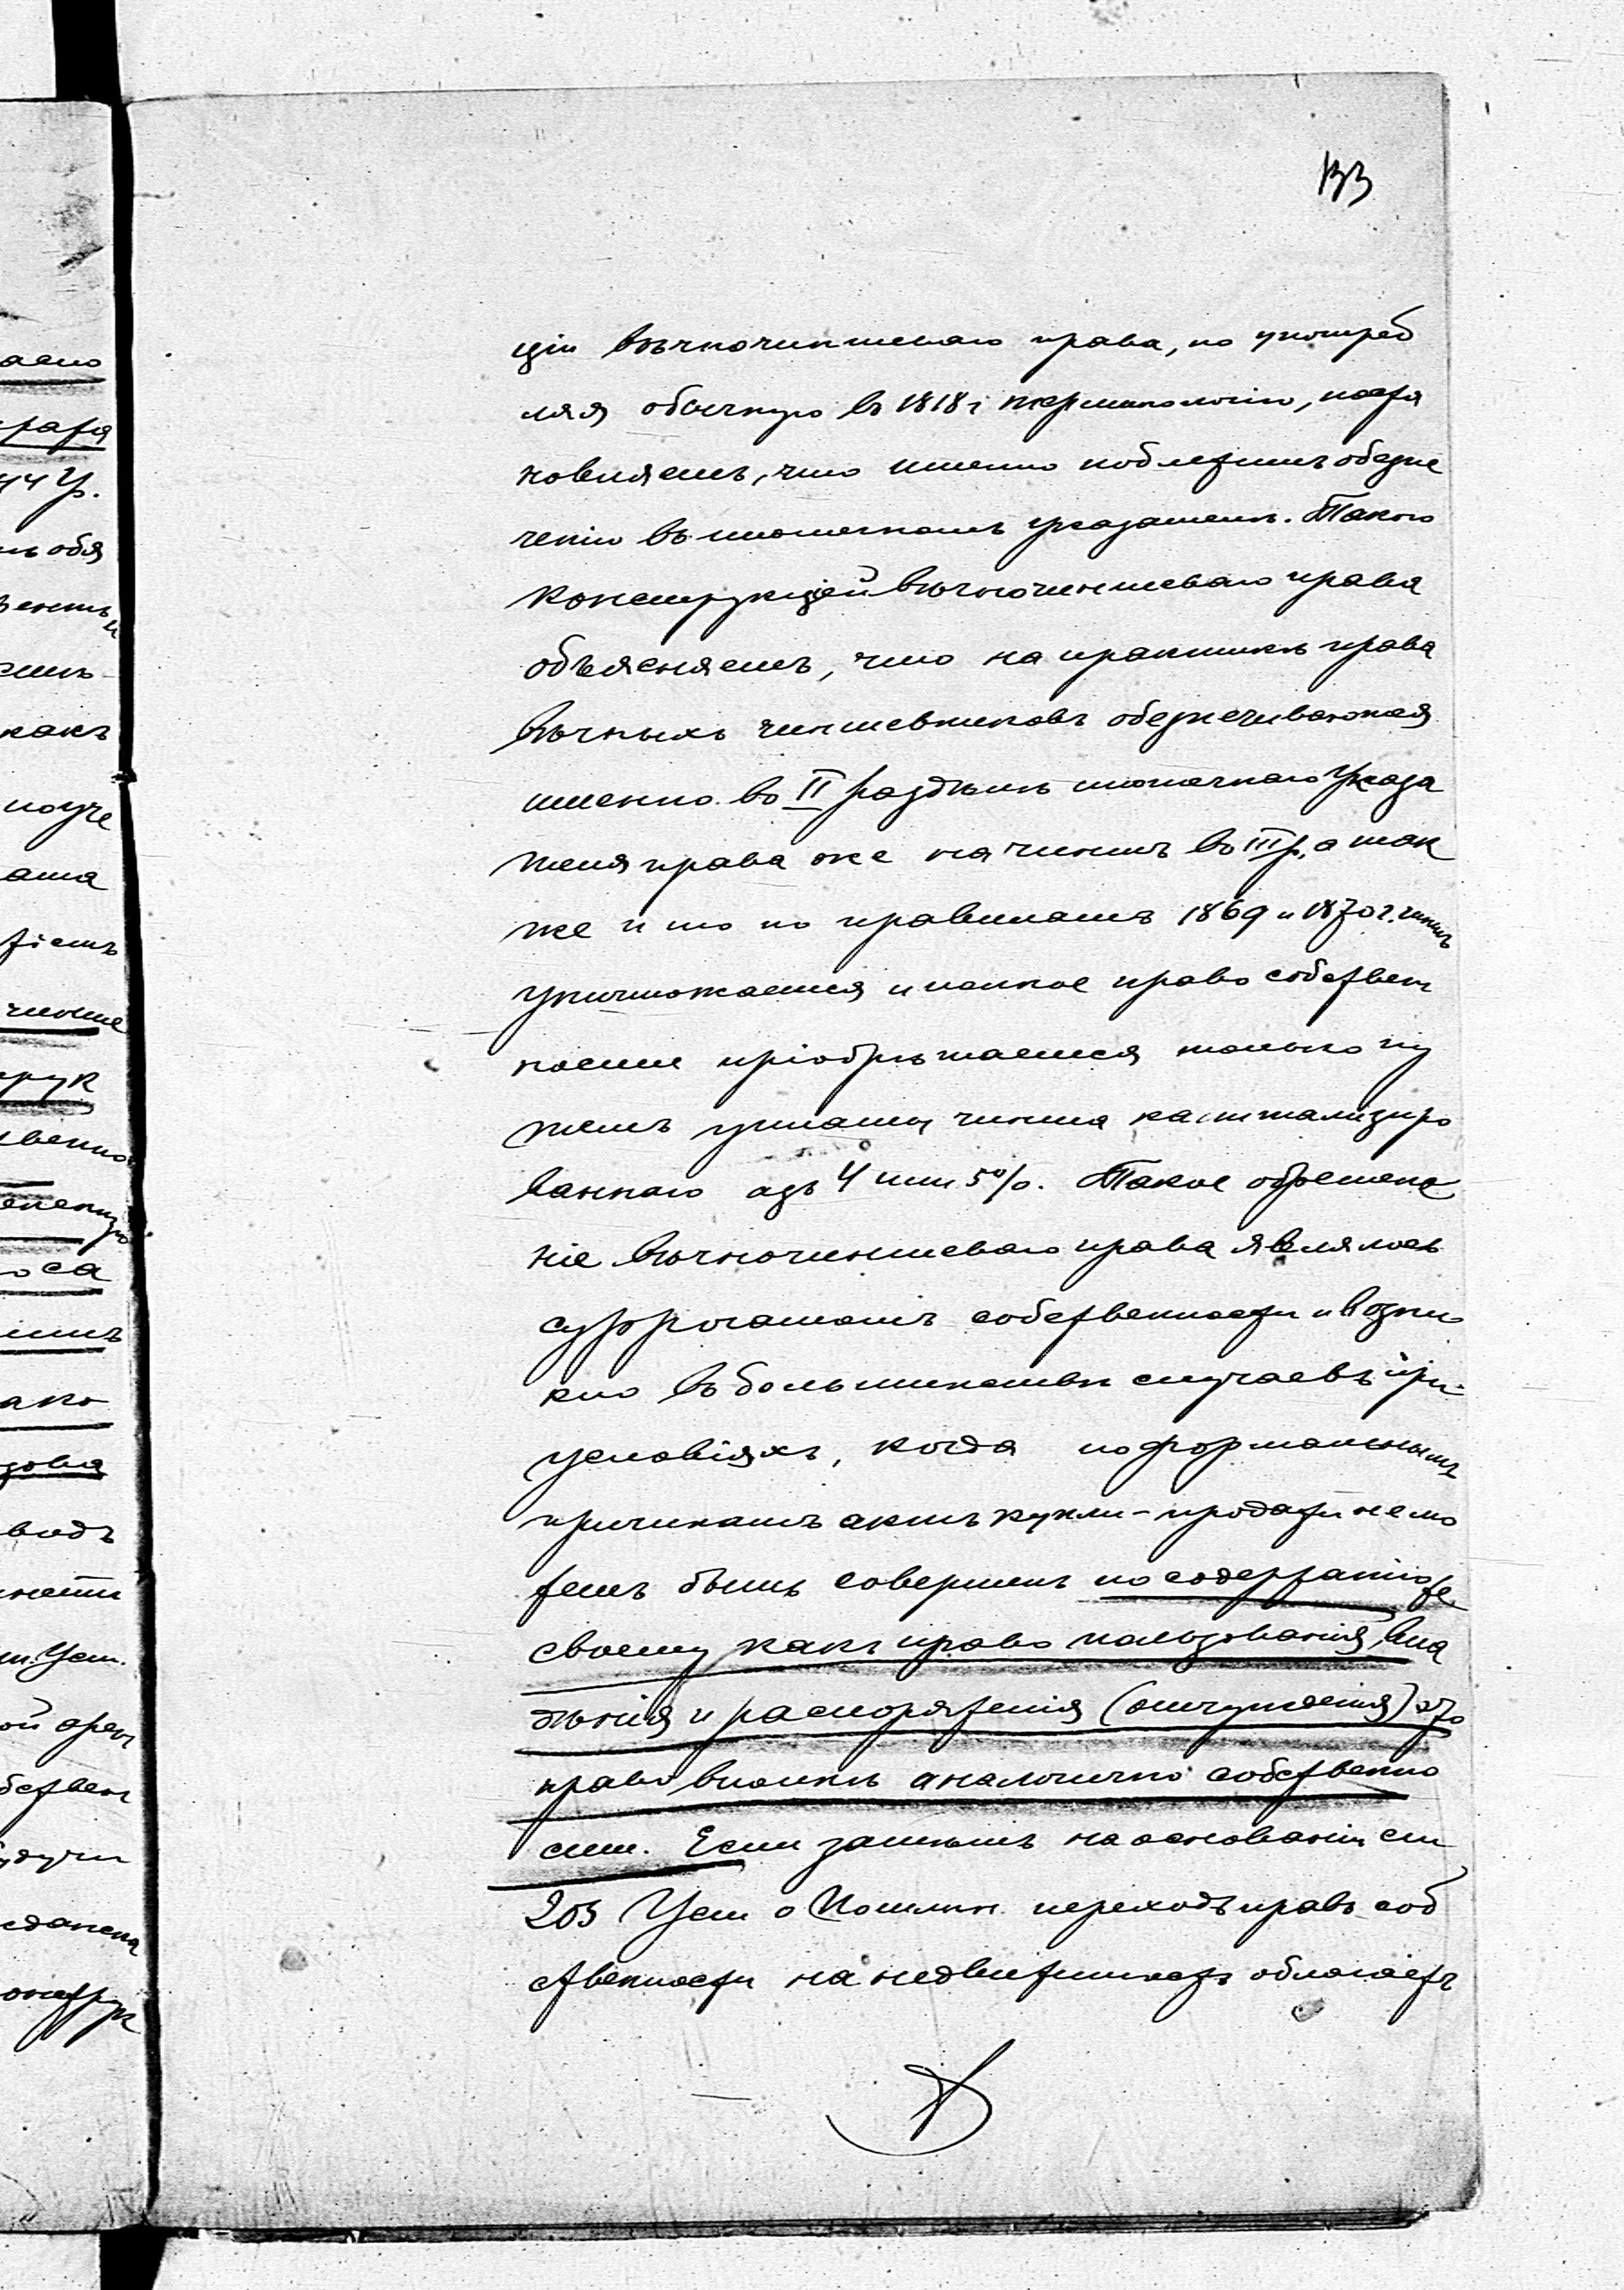 133
ціи вѣчночиншеваго права, но употреб
ляя обычную въ 1818 г терминологію, поста
новляетъ, что именно подлежитъ обезпе
ченію въ ипотечномъ указателѣ. Такою
конструкціей вѣчночиншеваго права
объясняетъ, что на практикѣ права
вѣчныхъ чиншевиковъ обезпечиваются
именно во II раздѣлѣ ипотечнаго указа
теля права же на чиншъ въ III р, а так
же и то по правиламъ 1869 и 1870 г. чиншъ
уничтожается и полное право собствен
ности пріобрѣтается только пу
темъ уплаты чинша капитализиро
ваннаго изъ 4 или 5%. Такое обремене
ніе вѣчночиншеваго права являлось
суррогатомъ собственности и возни
кло въ большинствѣ случаевъ при
условіяхъ, когда по формальнымъ
причинамъ актъ купли-продажи не мо
жетъ быть совершенъ по содержанію же
своему какъ право пользованія, вла
дѣнія и распоряженія (отчужденія) это
право вполнѣ аналогично собственно
сти. Если затѣмъ на основаніи ст
203 Уст о Пошлин. переходъ правъ соб
ственности на недвижимость облагаетъ
аено
 рафа
Уѣ.
 обя
какъ
поуче
рук
венно
са
ако
зова
видъ
ности
Уст.
ой арен
бствен
будучи